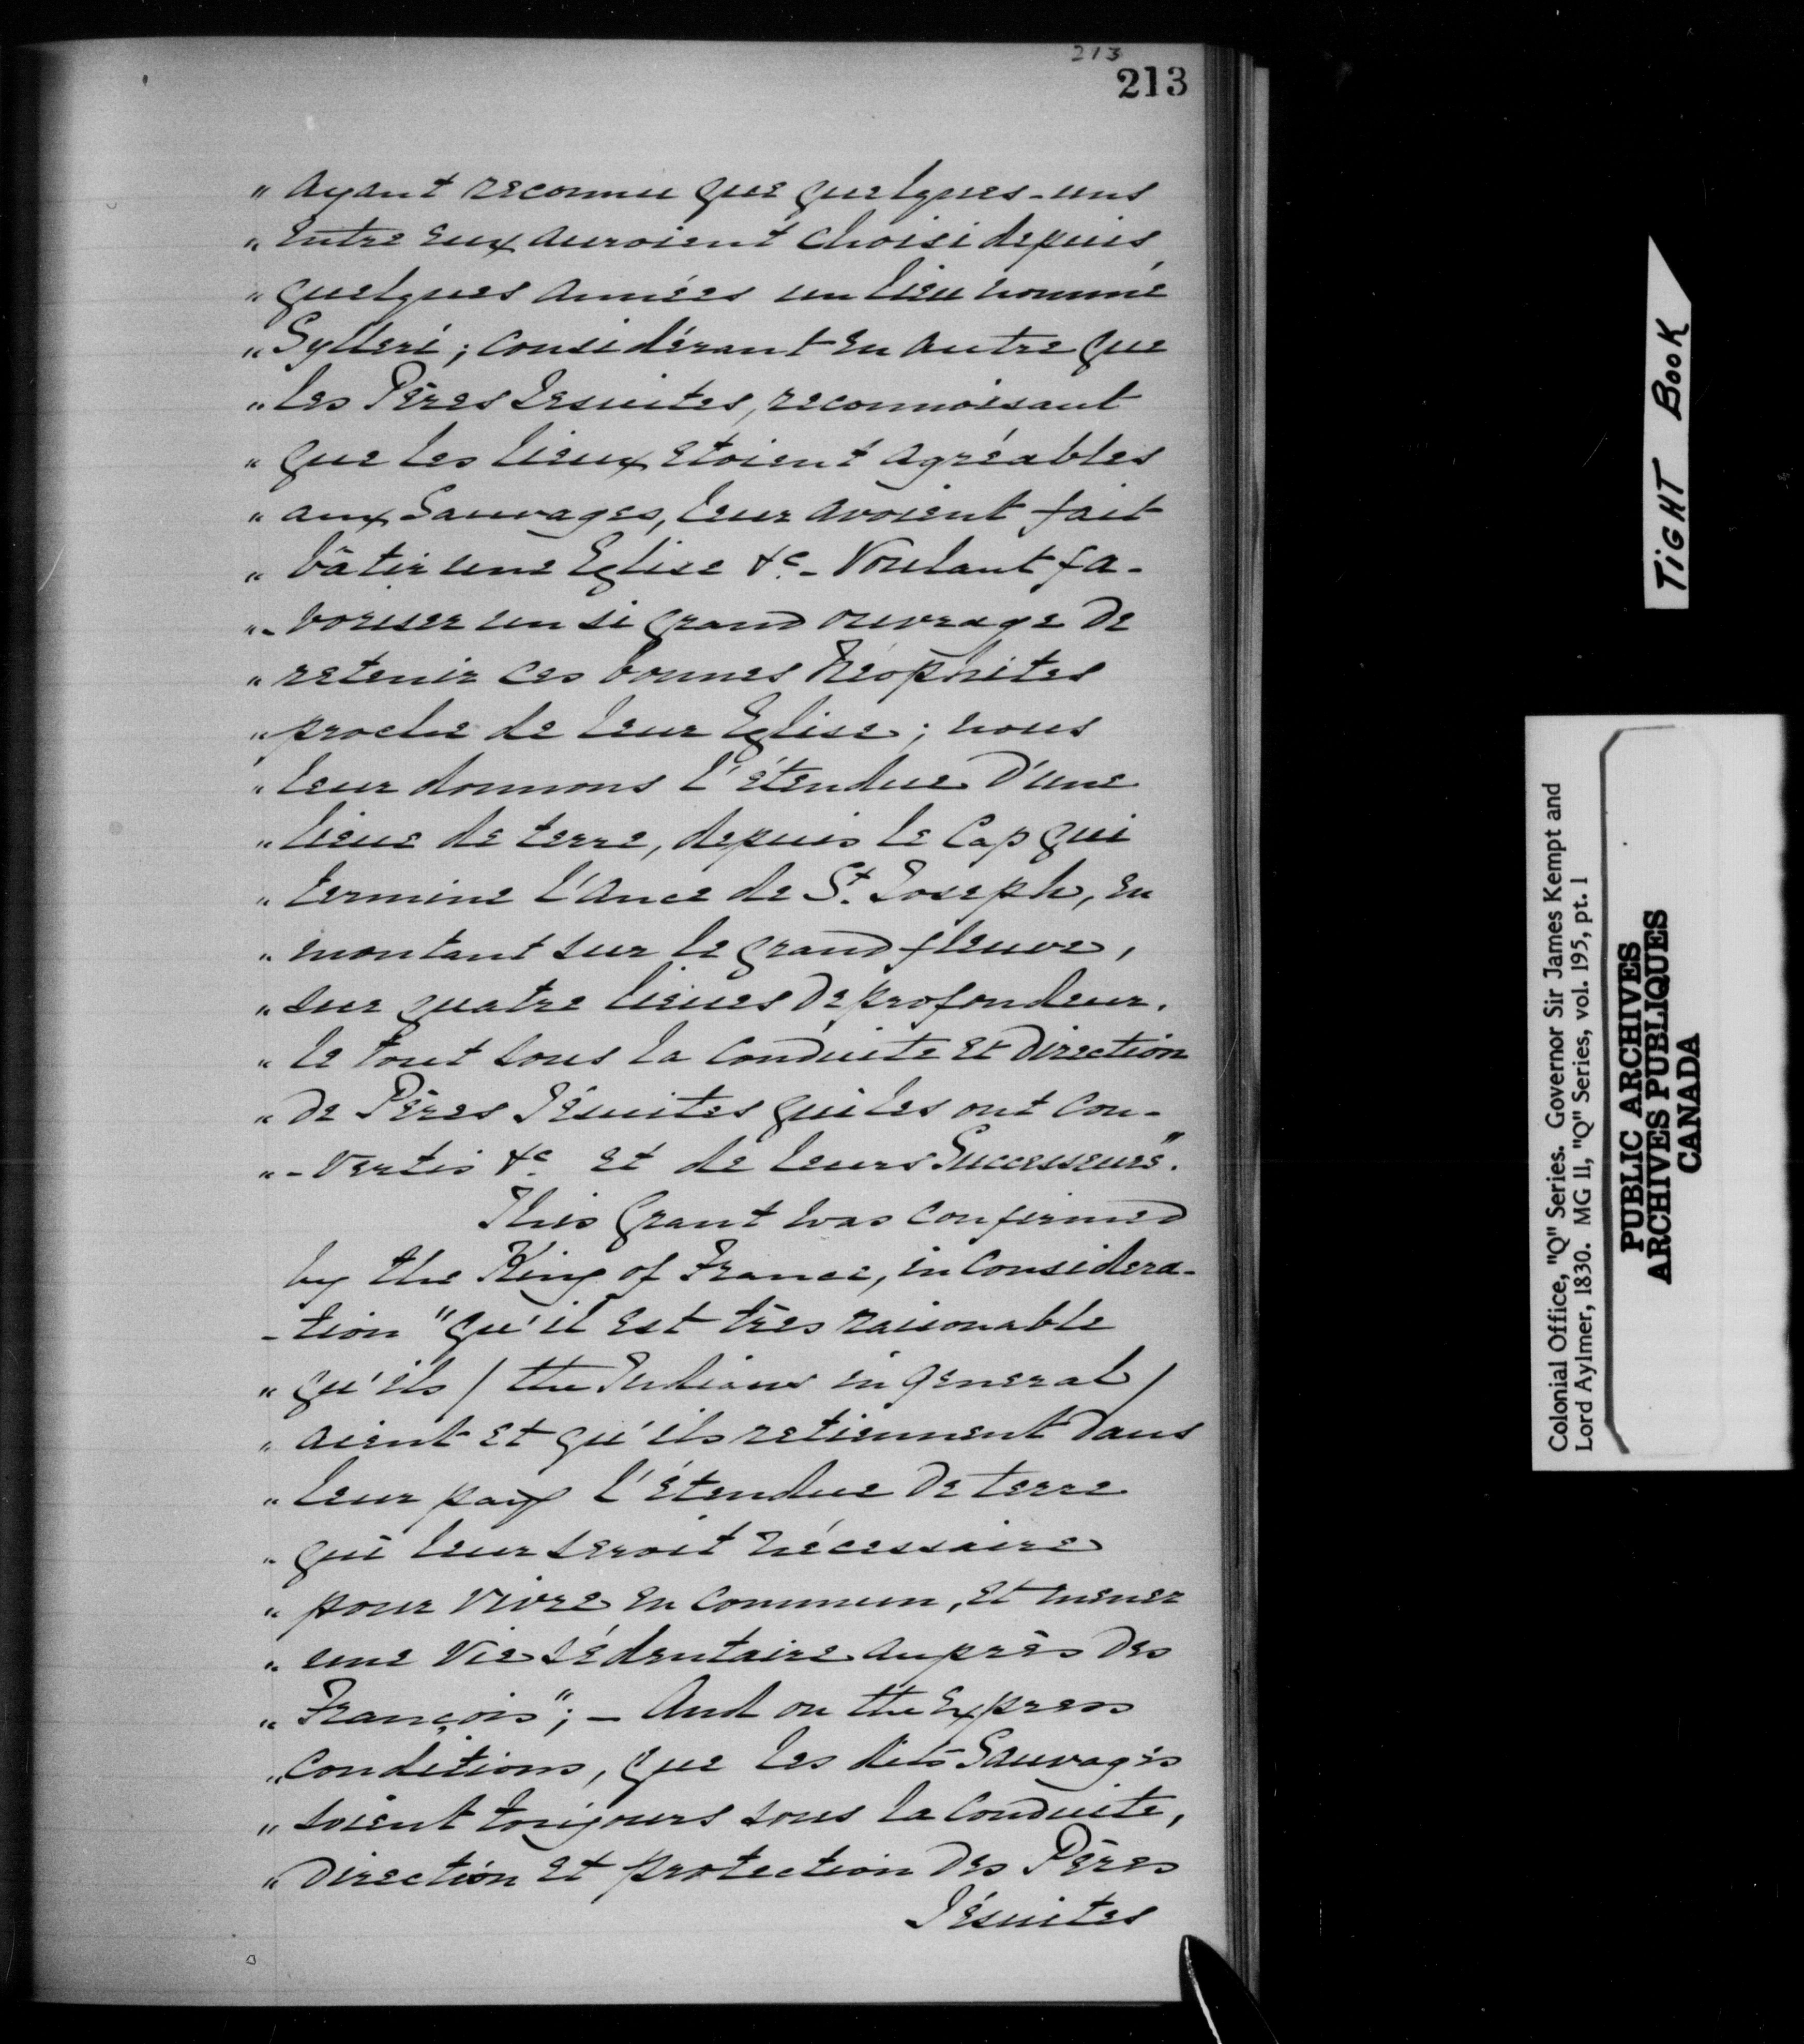 213
213
" ayant reconnu que quelques-uns
" Entre eux auroient choisi depuis
" quelques années un lieu nommé
" Sylleri; considérant en autre que
" les Pères Jesuites, reconnoisant
" que les lieux etoient agréables
" aux Sauvages, leur avoient fait
" bâtir une Eglise &c - Voulant fa-
" -voriser un si grand ouvrage de
" retenir ces bonnes Néophites
" proche de leur Eglise; nous
" leur donnons l'étendue d'une
" lieue de terre, depuis le Cap qui
" termine l'Ance de St. Joseph, en
" montant sur le grand fleuve,
" sur quatre lieues de profondeur.
" le tout sous la Conduite et Direction
" de Pères Jésuites qui les ont Con-
" -vertis &c et de leurs Successeurs".
This Grant was Confirmed
by the King of France, in Considera-
-tion "qu'il est très raisonable
" qu'ils / the Indians in general /
" aient et qu'ils retiennent dans
" leur pays l'étendue de terre
" qui leur seroit nécessaire
" pour vivre en Commun, et mener
" une Vie sédentaire auprès des
" François"; - And on the Express
" Conditions, que les dits Sauvages
" soient toujours sous la Conduite,
" Direction et protection des Pères
Jésuites
TIGHT BOOK
Colonial Office, "Q" Series. Governor Sir James Kempt and
Lord Aylmer, 1830. MG 11, "Q" Series, vol. 195, pt. 1
PUBLIC ARCHIVES
ARCHIVES PUBLIQUES
CANADA